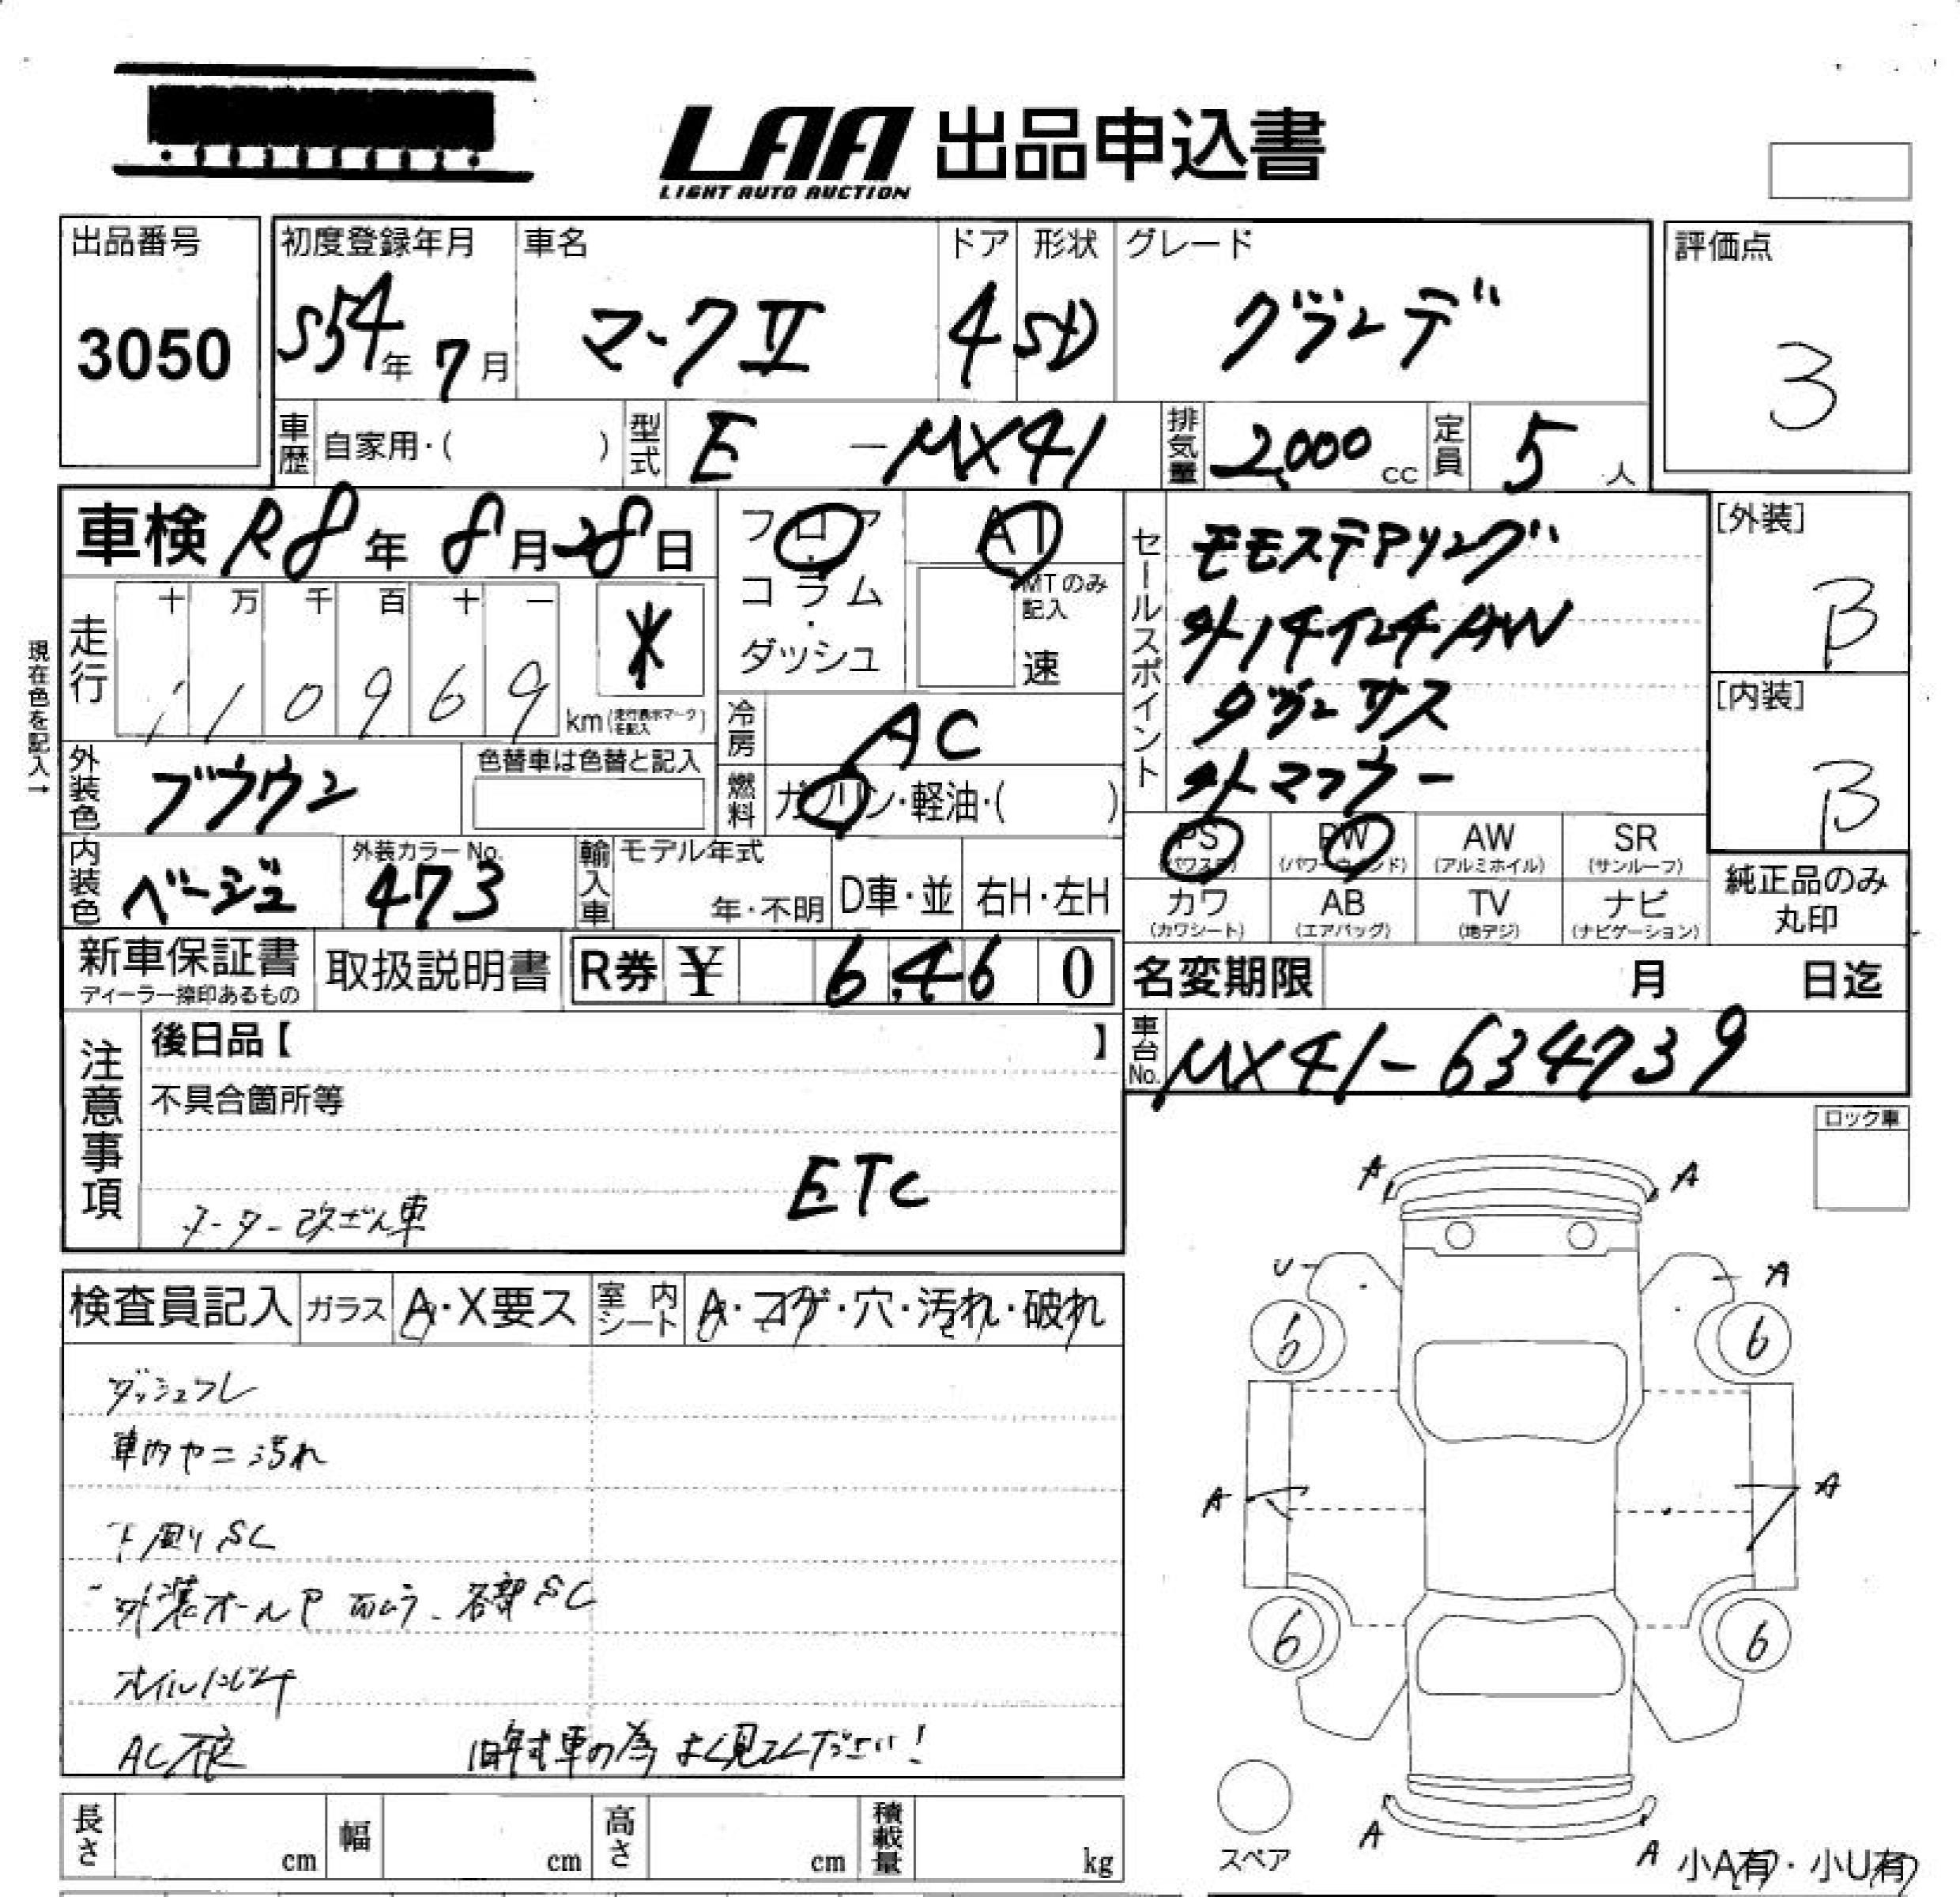 LAA 出品申込書
LIGHT AUTO AUCTION
出品番号
3050
初度登録年月
S54年 7月
車名
マークⅡ
ドア
4
形状
SD
グレード
グランデ
評価点
3
車歴 自家用・( )
型式 E - MX41
排気量 2,000 cc
定員 5 人
車検 R8年 8月28日
フロア・コラム・ダッシュ
AT
MTのみ記入
速
セールスポイント
モモステアリング
外14インチAW
タワーサス
外マフラー
[外装]
B
[内装]
B
現在色を記入→
走行
十 万 千 百 十 一
110969 km(走行表示マークを記入)
*
冷房 AC
燃料 ガソリン・軽油・( )
外装色 ブラウン
色替車は色替と記入
内装色 ベージュ
外装カラーNo.
473
輸入車
モデル年式
年・不明
D車・並
右H・左H
PS (パワステ)
PW (パワーウインド)
AW (アルミホイル)
SR (サンルーフ)
カワ (カワシート)
AB (エアバッグ)
TV (地デジ)
ナビ (ナビゲーション)
純正品のみ丸印
新車保証書
ディーラー捺印あるもの
取扱説明書
R券 ¥ 6,460
名変期限 月 日迄
車台No. MX41-634739
注意事項
後日品【 】
不具合箇所等
ETC
メーター改ざん車
ロック車
検査員記入
ガラス A・X要ス
室内シート A・コゲ・穴・汚れ・破れ
ダッシュフレ
車内ヤニ汚れ
下廻りSC
外装オールP 面ムラ、各部SC
オイルにじみ
AC不良
旧年式車の為よく見てください!
A A
U A
6 6
A A
6 6
A A
スペア
小A有・小U有
長さ cm
幅 cm
高さ cm
積載量 kg